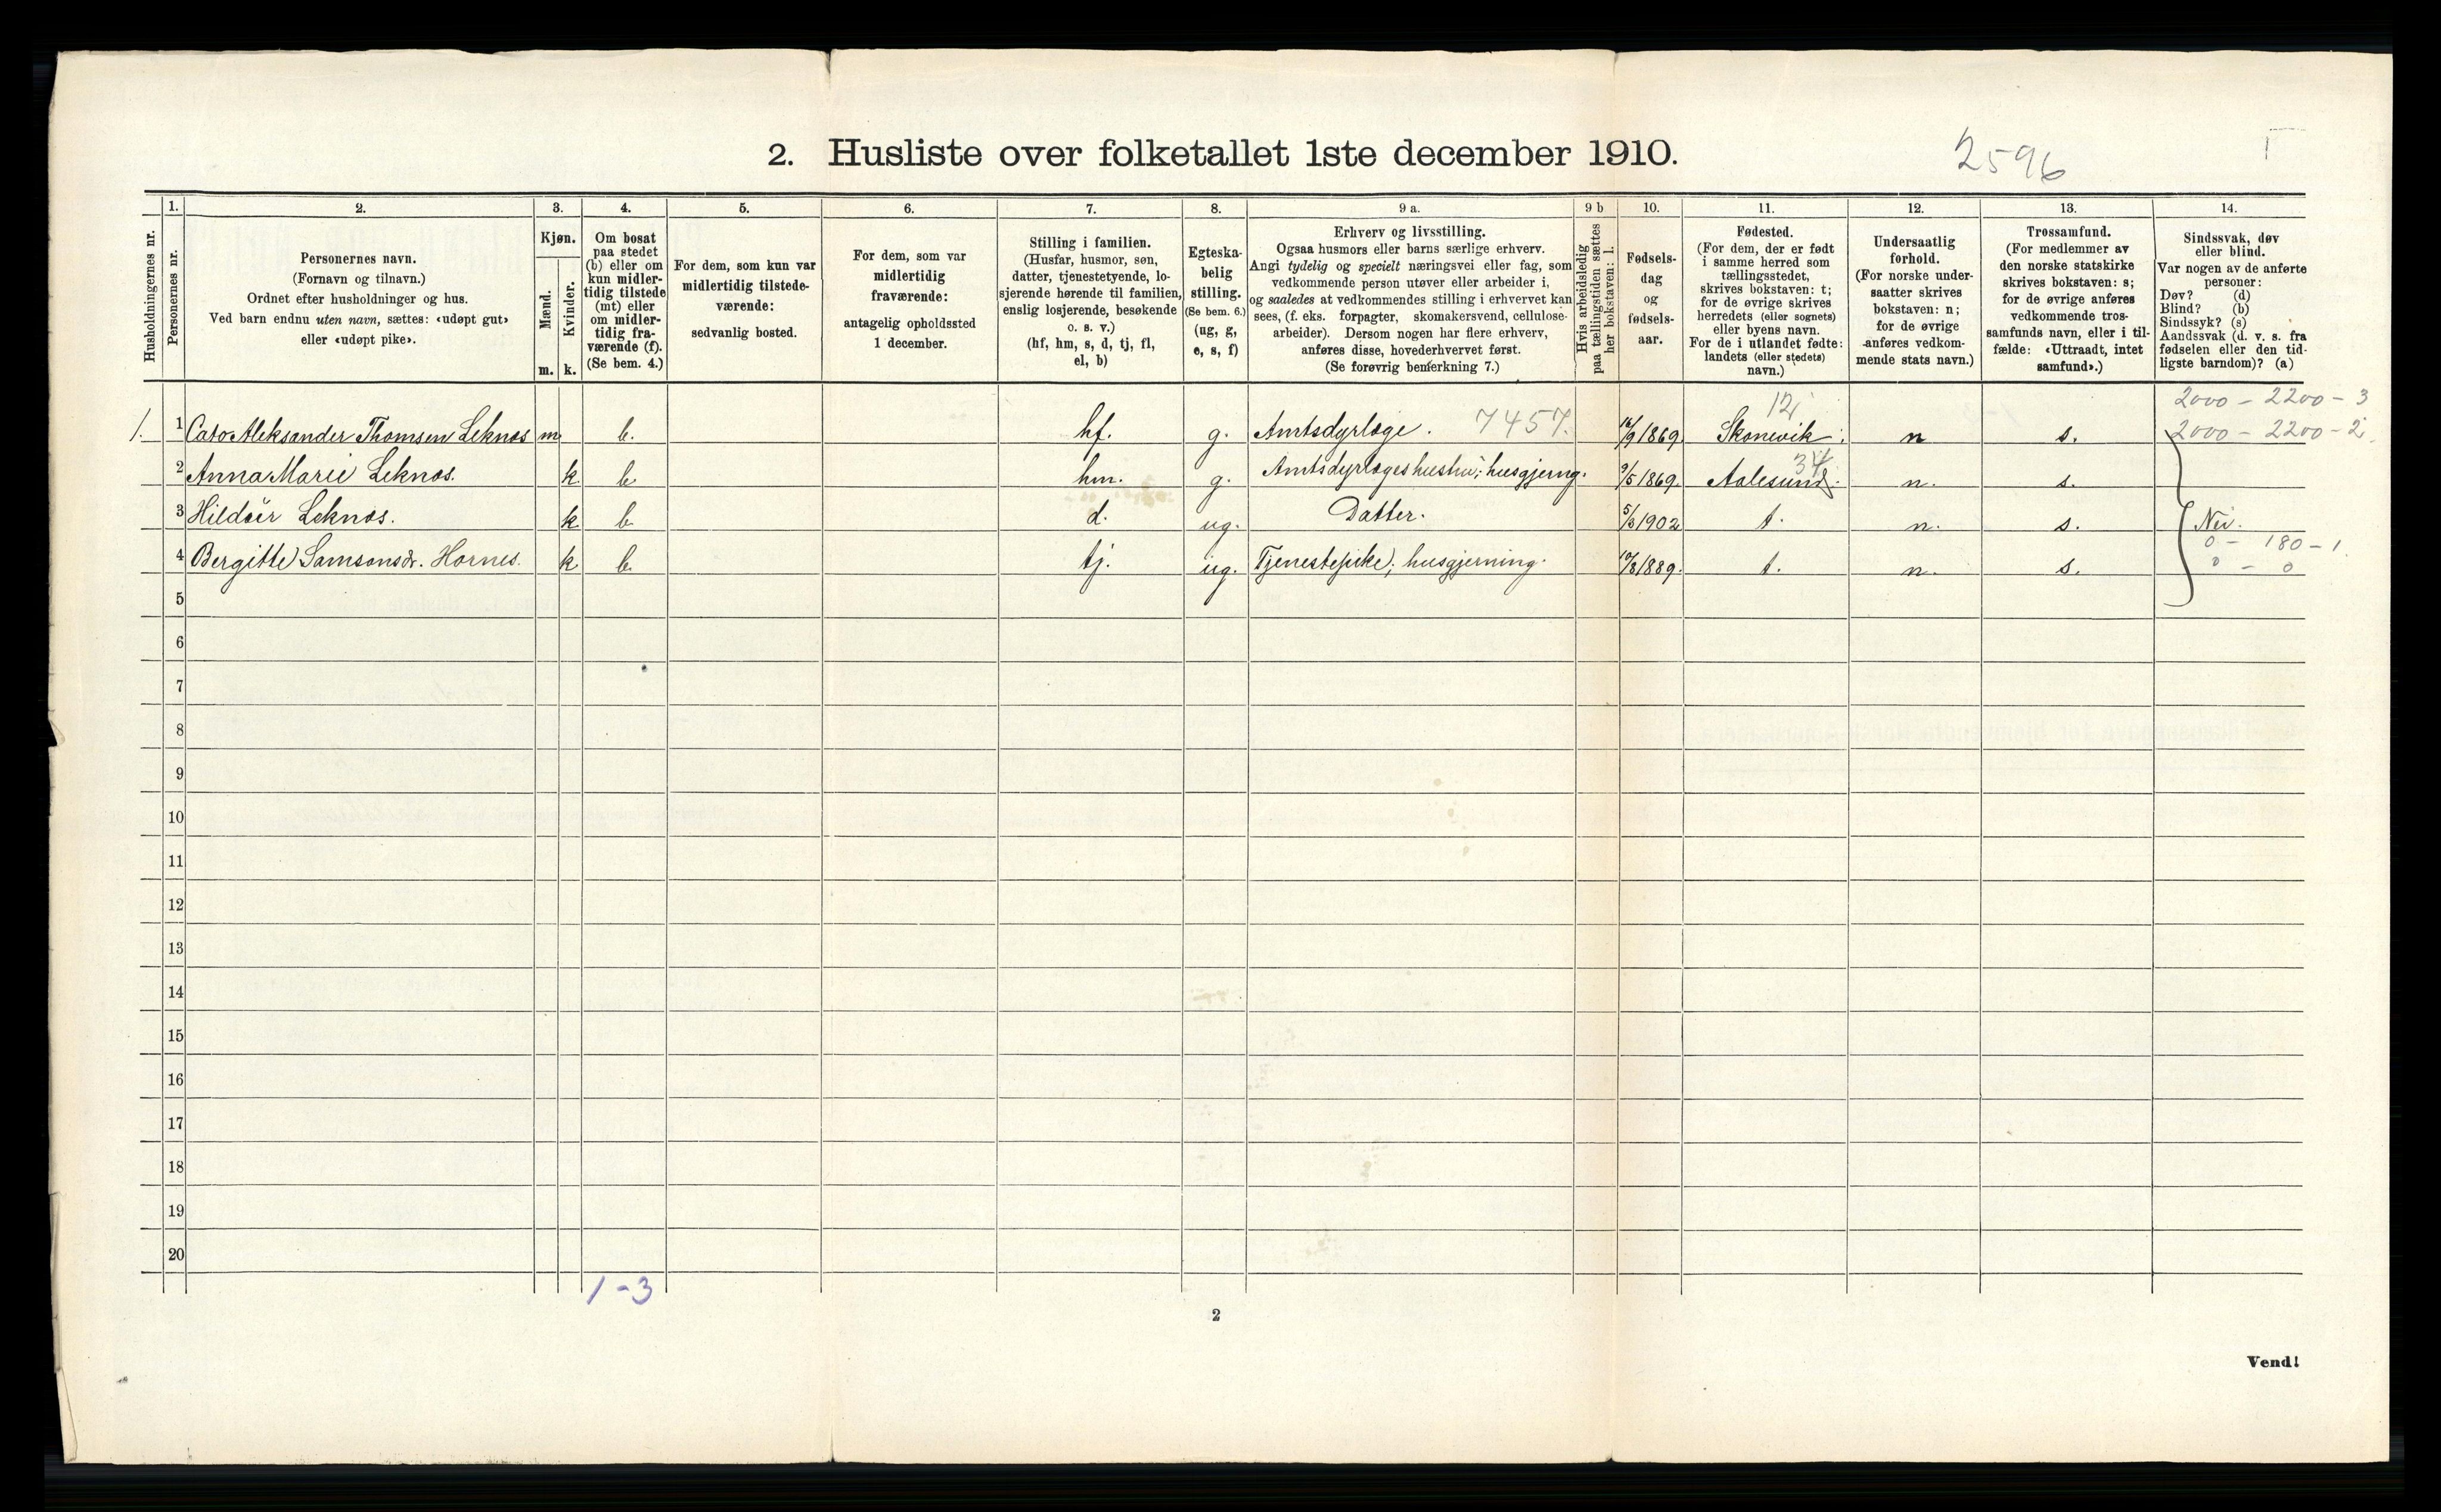 2. Husliste over folketallet 1ste december 1910.
2596
1. 2. 3. 4. 5. 6. 7. 8. 9 a. 9 b 10. 11. 12. 13. 14.
Husholdningernes nr.
Personernes nr.
Personernes navn.
(Fornavn og tilnavn.)
Ordnet efter husholdninger og hus.
Ved barn endnu uten navn, sættes: «udøpt gut»
eller «udøpt pike».
Kjøn.
Mænd.
Kvinder.
m. k.
Om bosat
paa stedet
(b) eller om
kun midler-
tidig tilstede
(mt) eller
om midler-
tidig fra-
værende (f).
(Se bem. 4.)
For dem, som kun var
midlertidig tilstede-
værende:
sedvanlig bosted.
For dem, som var
midlertidig
fraværende:
antagelig opholdssted
1 december.
Stilling i familien.
(Husfar, husmor, søn,
datter, tjenestetyende, lo-
sjerende hørende til familien,
enslig losjerende, besøkende
o. s. v.)
(hf, hm, s, d, tj, fl,
el, b)
Egteska-
belig
stilling.
(Se bem. 6.)
(ug, g,
e, s, f)
Erhverv og livsstilling.
Ogsaa husmors eller barns særlige erhverv.
Angi tydelig og specielt næringsvei eller fag, som
vedkommende person utøver eller arbeider i,
og saaledes at vedkommendes stilling i erhvervet kan
sees, (f. eks. forpagter, skomakersvend, cellulose-
arbeider). Dersom nogen har flere erhverv,
anføres disse, hovederhvervet først.
(Se forøvrig bemerkning 7.)
Hvis arbeidsledig
paa tællingstiden sættes
her bokstaven: l.
Fødsels-
dag
og
fødsels-
aar.
Fødested.
(For dem, der er født
i samme herred som
tællingsstedet,
skrives bokstaven: t;
for de øvrige skrives
herredets (eller sognets)
eller byens navn.
For de i utlandet fødte:
landets (eller stedets)
navn.)
Undersaatlig
forhold.
(For norske under-
saatter skrives
bokstaven: n;
for de øvrige
anføres vedkom-
mende stats navn.)
Trossamfund.
(For medlemmer av
den norske statskirke
skrives bokstaven: s;
for de øvrige anføres
vedkommende tros-
samfunds navn, eller i til-
fælde: «Uttraadt, intet
samfund».)
Sindssvak, døv
eller blind.
Var nogen av de anførte
personer:
Døv? (d)
Blind? (b)
Sindssyk? (s)
Aandssvak (d. v. s. fra
fødselen eller den tid-
ligste barndom)? (a)
12 2000 - 2200 - 3
1. 1 Cato Aleksander Thomsen Leknes m b. hf. g. Amtsdyrlæge. 7457. 16/9 1869. Skonevik. n s. 2000 - 2200 - 2
34
2 Anna Marie Leknes. k b hm. g. Amtsdyrlægeshustru; husgjerng. 9/5 1869. Aalesund. n. s.
3 Leknes. k b d. ug. Datter. 1902 t. n. s. Nei.
0 - 180 - 1.
4 Bergitte Samsonsdr. Hornes. k b tj. ug. Tjenestepike; husgjerning. 1889. t. n. s. 0 - 0
5
6
7
8
9
10
11
12
13
14
15
16
17
18
19
20
1 - 3
2
Vend!